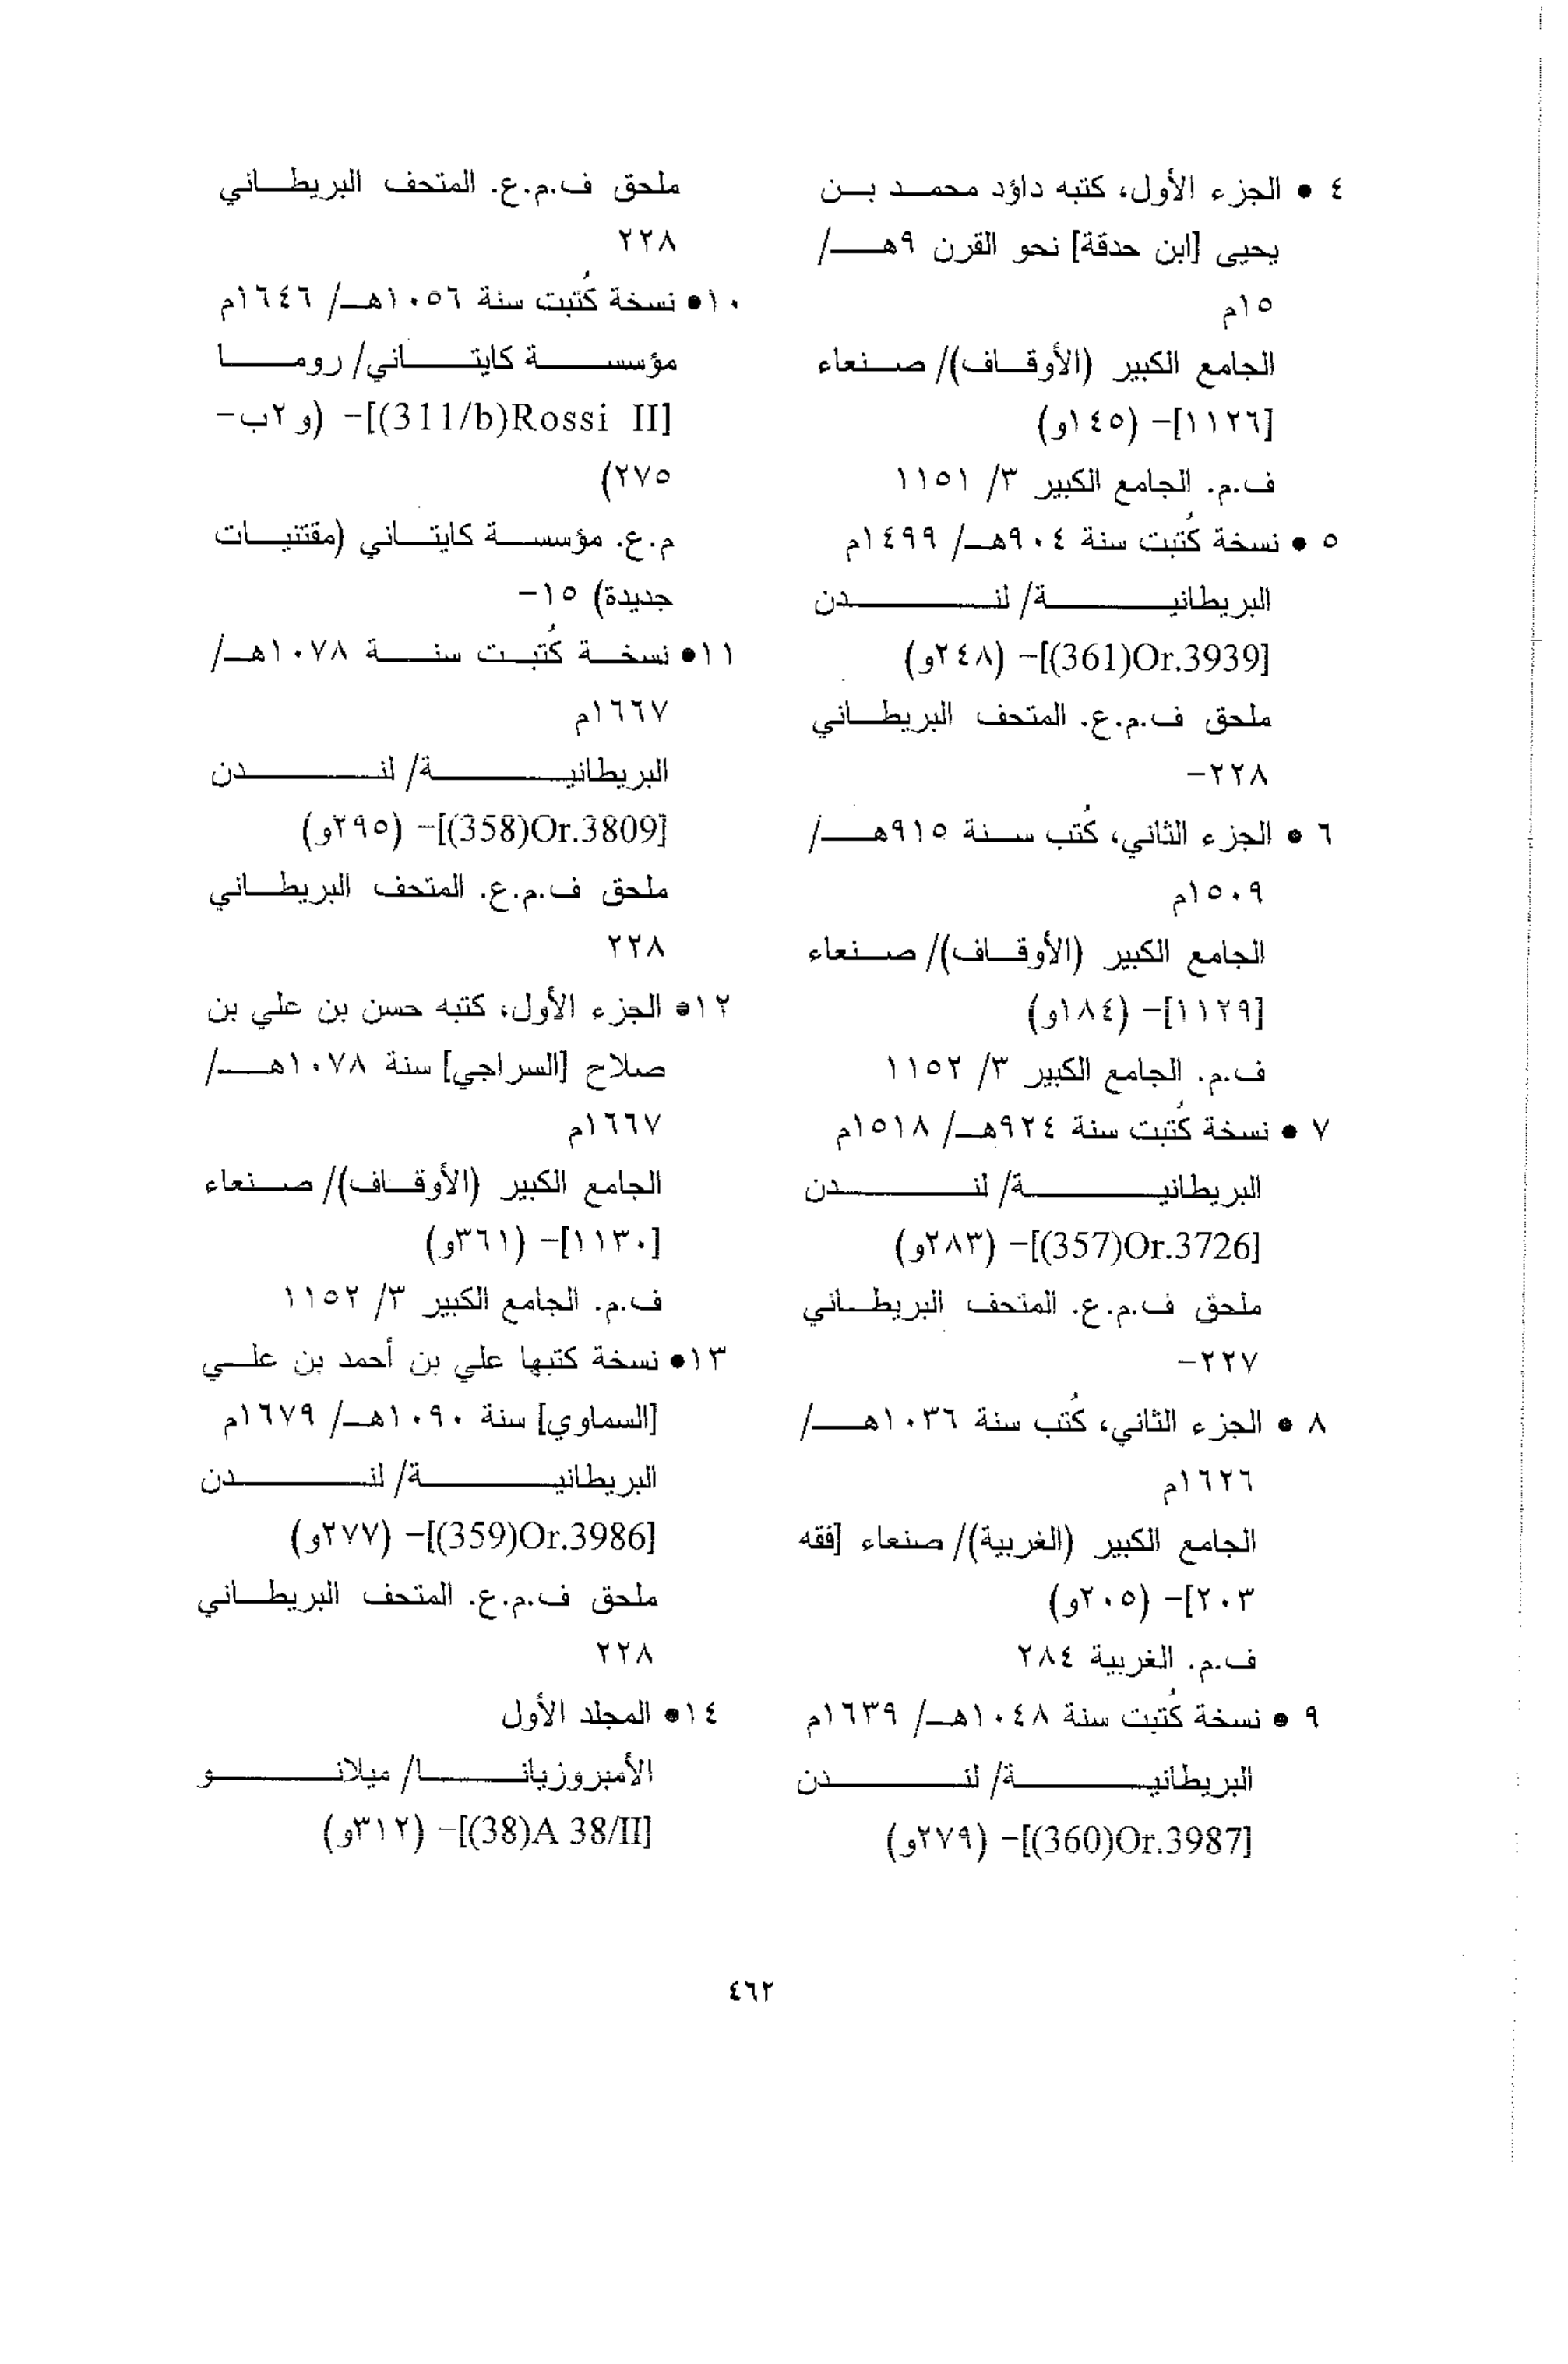 ٤ • الجزء الأول، كتبه داؤد محمد بن
يحيى [ابن حدقة] نحو القرن ٩هـ/
١٥م
الجامع الكبير (الأوقاف)/ صنعاء
[١١٢٦]- (١٤٥و)
ف.م. الجامع الكبير ٣/ ١١٥١
٥ • نسخة كُتبت سنة ٩٠٤هـ/ ١٤٩٩م
البريطانية/ لندن
[Or.3939(361)]- (٢٤٨و)
ملحق ف.م.ع. المتحف البريطاني
٢٢٨-
٦ • الجزء الثاني، كُتب سنة ٩١٥هـ/
١٥٠٩م
الجامع الكبير (الأوقاف)/ صنعاء
[١١٢٩]- (١٨٤و)
ف.م. الجامع الكبير ٣/ ١١٥٢
٧ • نسخة كُتبت سنة ٩٢٤هـ/ ١٥١٨م
البريطانية/ لندن
[Or.3726(357)]- (٢٨٣و)
ملحق ف.م.ع. المتحف البريطاني
٢٢٧-
٨ • الجزء الثاني، كُتب سنة ١٠٣٦هـ/
١٦٢٦م
الجامع الكبير (الغربية)/ صنعاء [فقه
٢٠٣]- (٢٠٥و)
ف.م. الغربية ٢٨٤
٩ • نسخة كُتبت سنة ١٠٤٨هـ/ ١٦٣٩م
البريطانية/ لندن
[Or.3987(360)]- (٢٧٩و)
ملحق ف.م.ع. المتحف البريطاني
٢٢٨
١٠• نسخة كُتبت سنة ١٠٥٦هـ/ ١٦٤٦م
مؤسسة كايتاني/ روما
[Rossi II(311/b)]- (و٢ب-
٢٧٥)
م.ع. مؤسسة كايتاني (مقتنيات
جديدة) ١٥-
١١• نسخة كُتبت سنة ١٠٧٨هـ/
١٦٦٧م
البريطانية/ لندن
[Or.3809(358)]- (٢٩٥و)
ملحق ف.م.ع. المتحف البريطاني
٢٢٨
١٢• الجزء الأول، كتبه حسن بن علي بن
صلاح [السراجي] سنة ١٠٧٨هـ/
١٦٦٧م
الجامع الكبير (الأوقاف)/ صنعاء
[١١٣٠]- (٣٦١و)
ف.م. الجامع الكبير ٣/ ١١٥٢
١٣• نسخة كتبها علي بن أحمد بن علي
[السماوي] سنة ١٠٩٠هـ/ ١٦٧٩م
البريطانية/ لندن
[Or.3986(359)]- (٢٧٧و)
ملحق ف.م.ع. المتحف البريطاني
٢٢٨
١٤• المجلد الأول
الأمبروزيانا/ ميلانو
[A 38/II(38)]- (٣١٢و)
٤٦٢